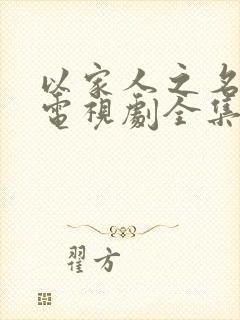 以家人之名
電視劇全集
翟方